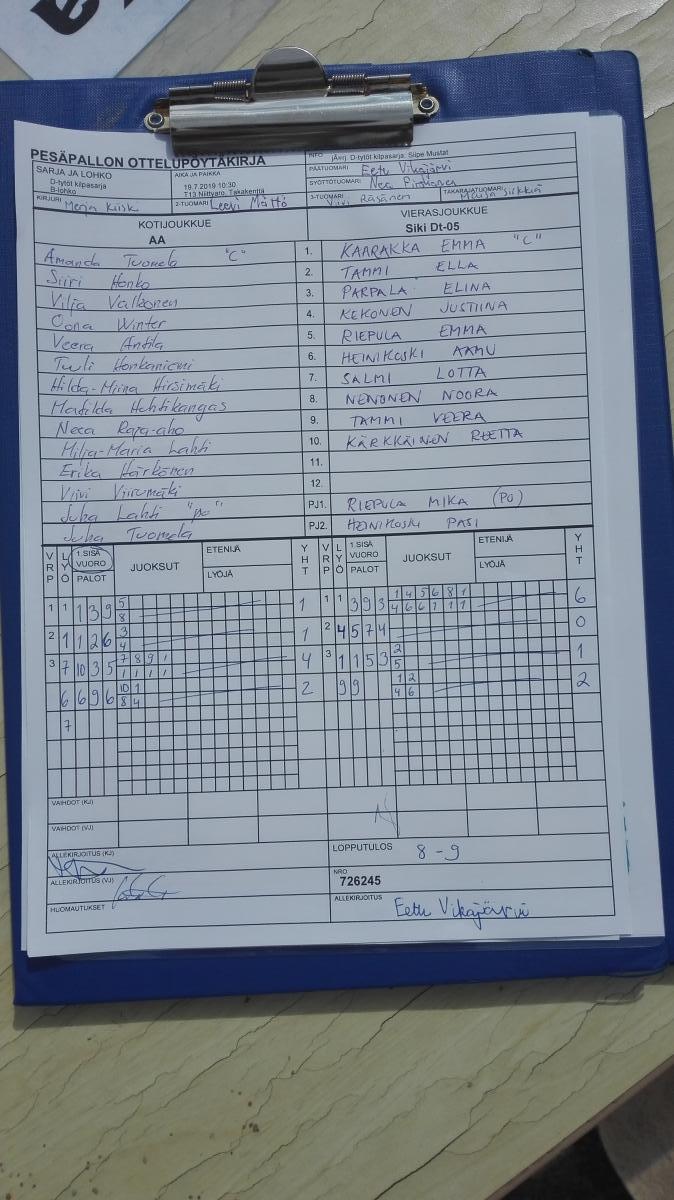 PESÄPALLON OTTELUPÖYTÄKIRJA
INFO jÄrej. D-tytöt kilpasarja: Siipe Mustat
SARJA JA LOHKO
D-tytöt kilpasarja
B-lohko
AIKA JA PAIKKA
19.7.2019 10:30,
T13 Niittyaro, Takakenttä
PÄÄTUOMARI Eetu Vikajärvi
SYÖTTÖTUOMARI Nea
KIRJURI Merja Kiisk
2-TUOMARI Leevi Mättö
3-TUOMARI Viivi Räsänen
TAKARAJATUOMARI Sirkkiä
KOTIJOUKKUE
AA
VIERASJOUKKUE
Siki Dt-05
Amanda Tuomela "C" 1. KAARAKKA EMMA "C"
Siiri Honko 2. TAMMI ELLA
Vilja Valkonen 3. PARPALA ELINA
Oona Winter 4. KEKONEN JUSTIINA
Veera Anttila 5. RIEPULA EMMA
Tuuli Honkaniemi 6. HEINIKOSKI AAMU
Hilda-Miina Hirsimäki 7. SALMI LOTTA
Matilda Huhtikangas 8. NENONEN NOORA
Neea Raja-aho 9. TAMMI VEERA
Milja-Maria Lahti 10. KÄRKKÄINEN REETTA
Erika Härkönen 11.
Viivi Viirumäki 12.
Juha Lahti "po" PJ1. RIEPULA MIKA (PO)
Juha Tuomela PJ2. HEINIKOSKI PASI
VRP LYÖ 1.SISÄ VUORO PALOT JUOKSUT ETENIJÄ LYÖJÄ YHT VRP LYÖ 1.SISÄ VUORO PALOT JUOKSUT ETENIJÄ LYÖJÄ YHT
1 1 1 3 9 5 8 1 1 1 3 9 3 1 4 5 6 8 1 4 6 6 7 1 1 6
2 1 1 2 6 3 4 1 2 4 5 7 4 0
3 7 10 3 5 7 8 9 1 1 1 1 1 4 3 1 1 5 3 2 5 1
6 6 9 6 10 1 8 4 2 9 9 1 2 4 6 2
7
VAIHDOT (KJ)
VAIHDOT (VJ)
ALLEKIRJOITUS (KJ)
LOPPUTULOS 8-9
ALLEKIRJOITUS (VJ)
NRO
726245
HUOMAUTUKSET
ALLEKIRJOITUS Eetu Vikajärvi